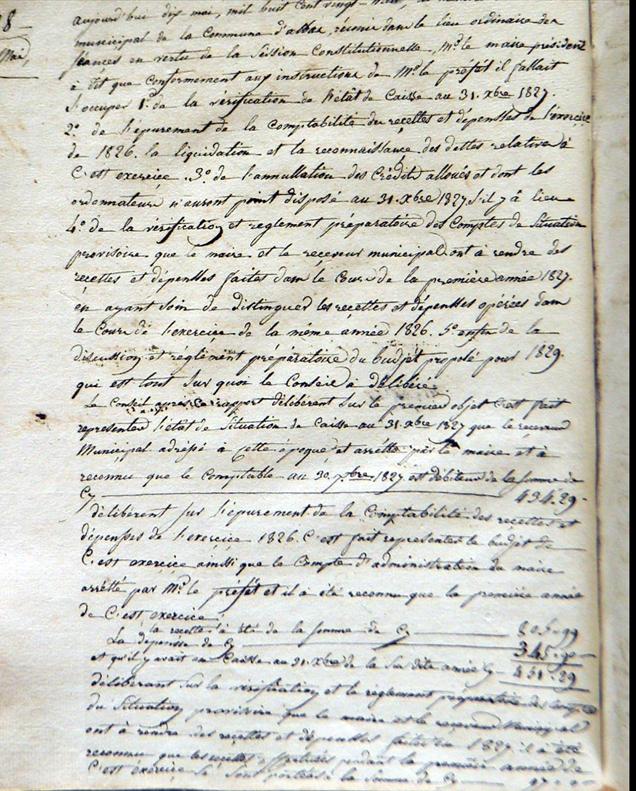 8
Mai
aujourd'hui dix mai, mil huit cent vingt
municipal de la Commune d'albas, réunie dans le lieu ordinaire des
séances en vertu de la Session Constitutionnelle, Mr. le maire président
a dit que Conformement aux instructions de Mr. le préfèt il fallait
s'occuper 1°. de la vérification de l'état de Caisse au 31. xbre 1827.
2°. de l'épurement de la Comptabilité des recettes et dépensses de l'exercice
de 1826. la liquidation et la reconnaissance des dettes relative à
C'est exercice. 3°. de l'annullation des Crédits alloués et dont les
ordonnateurs n'auront point disposé au 31. xbre 1827, s'il y à lieu
4°. de la vérification et reglement préparatoire des Comptes de Situation
provisoire que le maire et le receveur municipal ont à rendre des
récettes et dépensses faites dans le Cour de la première année 1827.
en ayant soin de distinguer les recettes et dépensses opérées dans
le Cours de l'exercice de la même année 1826. 5°. enfin de la
discussion et réglement préparatoire du budjet proposé pour 1829.
qui est tout Sur quoi le Conseil a délibéré.
Le Conseil après Ce rapport délibérent Sur le premier objet C'est fait
representer l'état de Situation de Caisse au 31. xbre 1827 que le receveur
Municipal adréssé a cette époque et arrétté par le maire et à
reconnu que le Comptable au 30. xbre 1827 est débiteur de la somme de
Cy 434.29
délibérent sur l'épurement de la Comptabilité des recettes et
dépenses de l'exercice 1826. C'est fait representer le budjet de
C'est exercice ainsi que le Compte d'administration du maire
arrétté par Mr. le préfét et il à été reconnu que la première année
de C'est exercice
la recette à été de la somme de Cy 805.99
La dépense de Cy 345.90
et qu'il y avait en Caisse au 31. xbre de la Sus dite année Cy 451.29
délibérant sur la vérification et le reglement preparatoire des Comptes
du Situation provisoire que le maire et le receveur Municipal
ont à rendre des recettes et dépensses faites en 1827. il a été
reconnu que les recettes effectuées pendant la première année de
C'est exercice Se Sont portées à la Somme de Cy